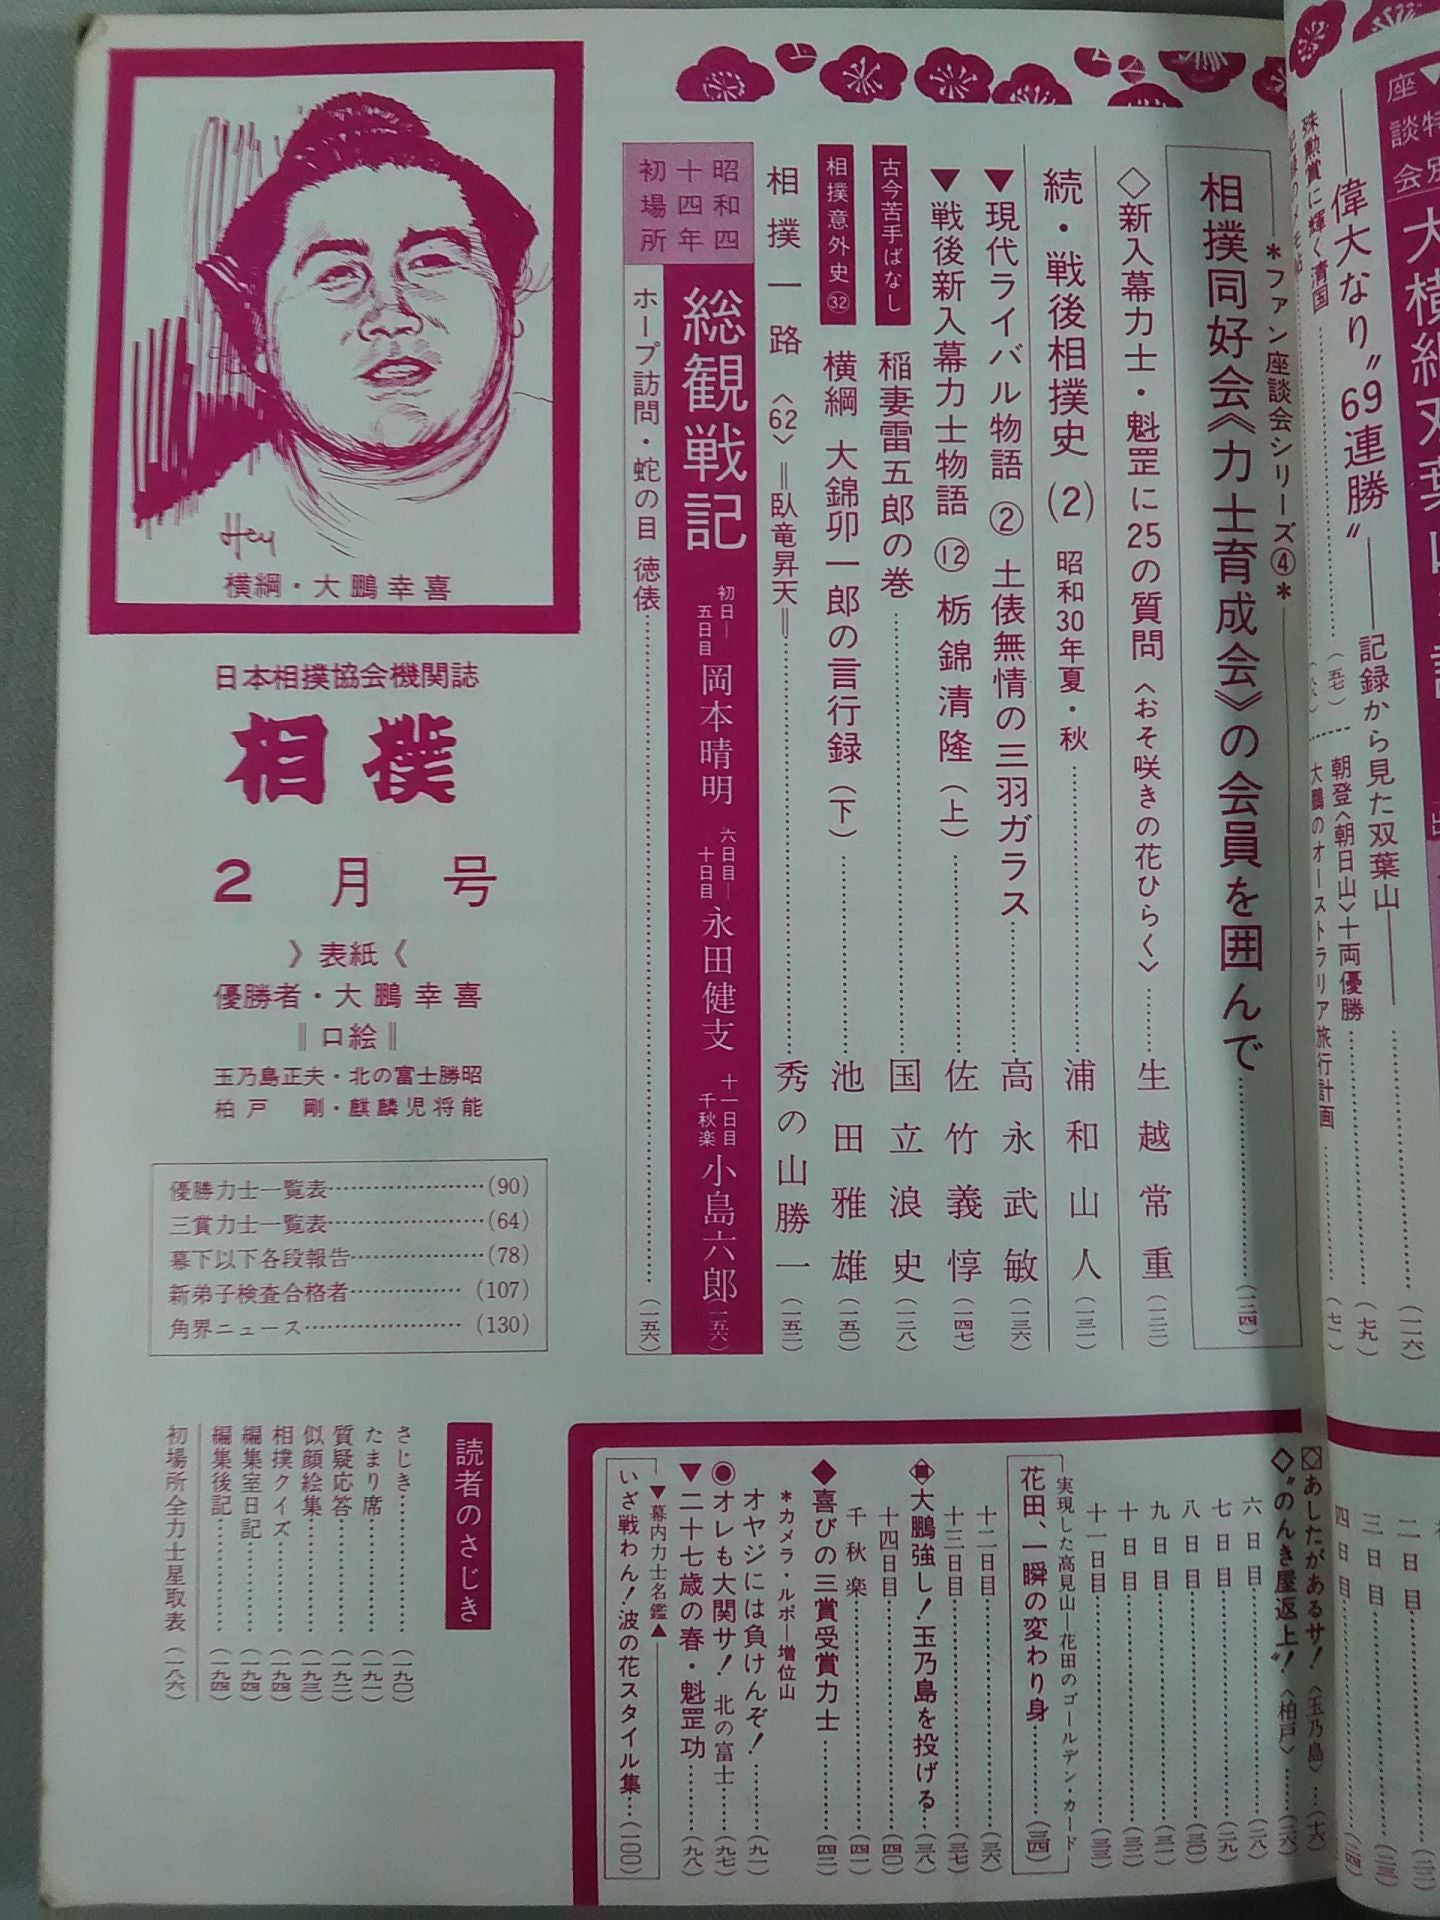 座談会
偉大なり〝69連勝〟
記録から見た双葉山
(一一六)
殊勲賞に輝く清国
(五七)
朝登〈朝日山〉十両優勝
(七九)
大鵬のオーストラリア旅行計画
(七一)
*ファン座談会シリーズ④*
相撲同好会《力士育成会》の会員を囲んで
(一二四)
◇新入幕力士・魁罡に25の質問〈おそ咲きの花ひらく〉
生越常重
(一二二)
続・戦後相撲史(2) 昭和30年夏・秋
浦和山人
(一三一)
▼現代ライバル物語② 土俵無情の三羽ガラス
高永武敏
(一三六)
▼戦後新入幕力士物語⑫ 栃錦清隆(上)
佐竹義惇
(一四七)
古今苦手ばなし
稲妻雷五郎の巻
国立浪史
(一二八)
相撲意外史㉜
横綱 大錦卯一郎の言行録(下)
池田雅雄
(一五〇)
相撲一路〈62〉=臥竜昇天=
秀の山勝一
(一五二)
昭和四十四年初場所
総観戦記
初日―五日目 岡本晴明
六日目―十日目 永田健支
十一日目―千秋楽 小島六郎
(一五六)
ホープ訪問・蛇の目 徳俵
(一五六)
Hey
横綱・大鵬幸喜
日本相撲協会機関誌
相撲
2月号
》表紙《
優勝者・大鵬幸喜
‖口絵‖
玉乃島正夫・北の富士勝昭
柏戸 剛・麒麟児将能
優勝力士一覧表(90)
三賞力士一覧表(64)
幕下以下各段報告(78)
新弟子検査合格者(107)
角界ニュース(130)
あしたがあるサ!〈玉乃島〉(一六)
◇〝のんき屋返上〟!〈柏戸〉(二六)
二日目
三日目
四日目
六日目(二八)
七日目(二九)
八日目(三〇)
九日目(三一)
十日目(三二)
十一日目(三三)
実現した高見山―花田のゴールデン・カード
花田、一瞬の変わり身(三四)
十二日目(三六)
十三日目(三七)
大鵬強し!玉乃島を投げる(三八)
十四日目(四〇)
千秋楽(四一)
◆喜びの三賞受賞力士(四二)
*カメラ・ルポー増位山
オヤジには負けんぞ!(九一)
◉オレも大関サ!北の富士(九七)
▼二十七歳の春・魁罡功(九八)
▼幕内力士名鑑▲
いざ戦わん!波の花スタイル集(一〇〇)
読者のさじき
さじき(一九〇)
たまり席(一九一)
質疑応答(一九二)
似顔絵集(一九三)
相撲クイズ(一九四)
編集室日記(一九四)
編集後記(一九四)
初場所全力士星取表(一八六)